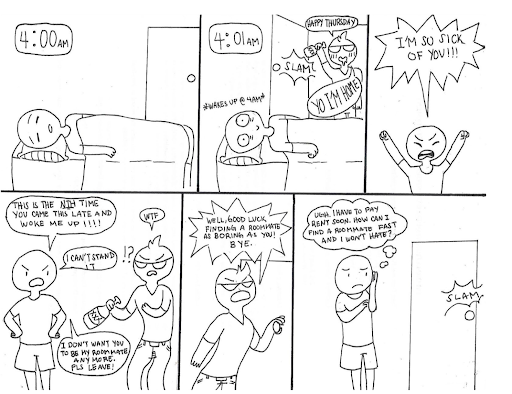 4:00AM
4:01AM
HAPPY THURSDAY
SLAM!
YO I'M HOME
*WAKES UP @ 4AM*
I'M SO SICK
OF YOU!!!
THIS IS THE NTH TIME
YOU CAME THIS LATE AND
WOKE ME UP!!!!
I CAN'T STAND
IT
!?
WTF
I DON'T WANT YOU
TO BE MY ROOMMATE
ANY MORE.
PLS LEAVE!
WELL, GOOD LUCK
FINDING A ROOMMATE
AS BORING AS YOU!
BYE.
UGH, I HAVE TO PAY
RENT SOON. HOW CAN I
FIND A ROOMMATE FAST
AND I WON'T HATE?
SLAM